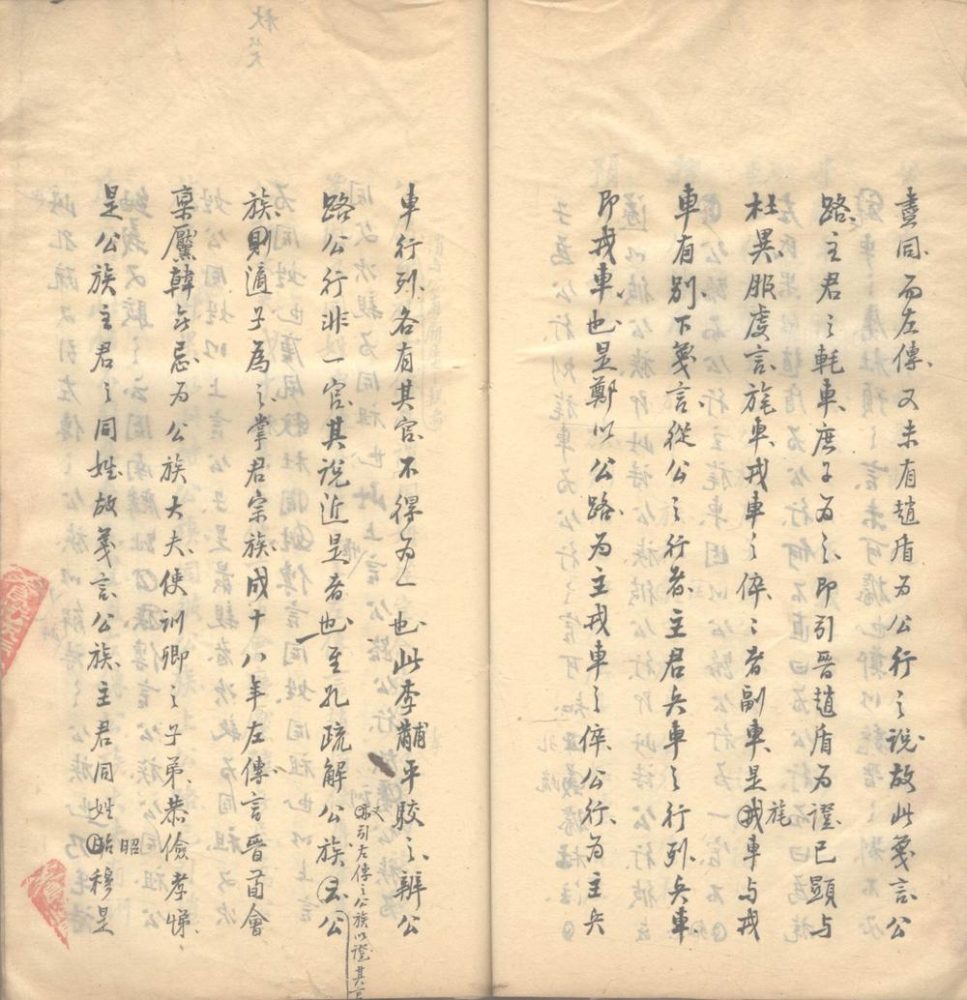 盡同而左傳又未有趙盾為公行之說故此箋言公
路主君之軞車庶子為之即引晉趙盾為證已顯與
杜異服虔言旄車戎車之倅倅者副車是戎旄車與戎
車有別下箋言從公之行者主君兵車之行列兵車
即戎車也是鄭以公路為主戎車之倅公行為主兵
車行列各有其官不得為一也此李黼平駁之辨公
路公行非一官其說近是者也至孔疏解公族云公
又引左傳之公族以證其言
族則適子為之掌君宗族成十八年左傳言晉荀會
欒黶韓無忌為公族大夫使訓卿之子弟恭儉孝悌
是公族主君之同姓故箋言公族主君同姓昭穆是
昭
秋